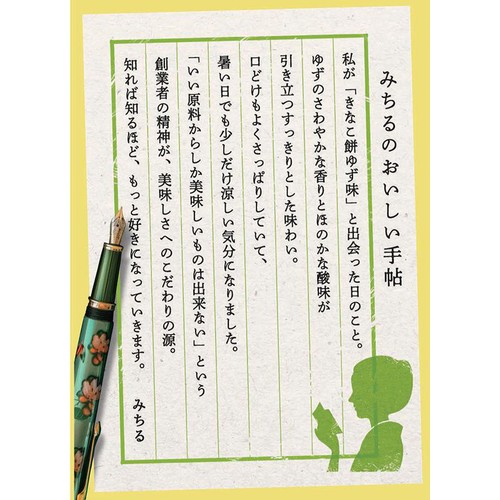 みちるのおいしい手帖
私が「きなこ餅ゆず味」と出会った日のこと。
ゆずのさわやかな香りとほのかな酸味が
引き立つすっきりとした味わい。
口どけもよくさっぱりしていて、
暑い日でも少しだけ涼しい気分になりました。
「いい原料からしか美味しいものは出来ない」という
創業者の精神が、美味しさへのこだわりの源。
知れば知るほど、もっと好きになっていきます。
みちる